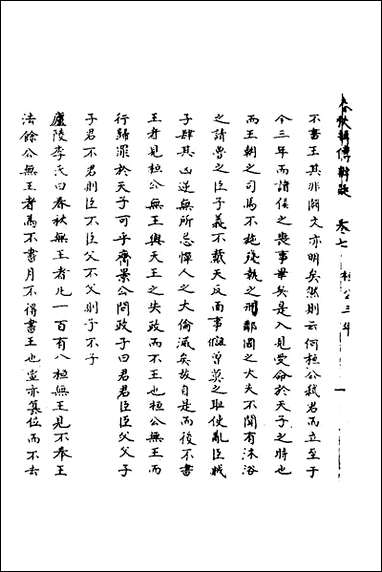 春秋輯傳辨疑　卷七　桓公三年　一
不書王其非闕文亦明矣然則云何桓公弒君而立至于
今三年而諸侯之喪事畢矣是入見受命於天子之時也
而王朝之司馬不施殘執之刑鄰國之大夫不聞有沐浴
之請魯之臣子義不戴天反面事讎曾莫之耻使亂臣賊
子肆其凶逆無所忌憚人之大倫滅矣故自是而後不書
王者見桓公無王與天王之失政而不王也桓公無王而
行歸罪於天子可乎齊景公問政子曰君君臣臣父父子
子君不君則臣不臣父不父則子不子
廬陵李氏曰春秋無王者凡一百有八桓無王見不奉王
法餘公無王者為不書月不得書王也宣亦篡位而不去